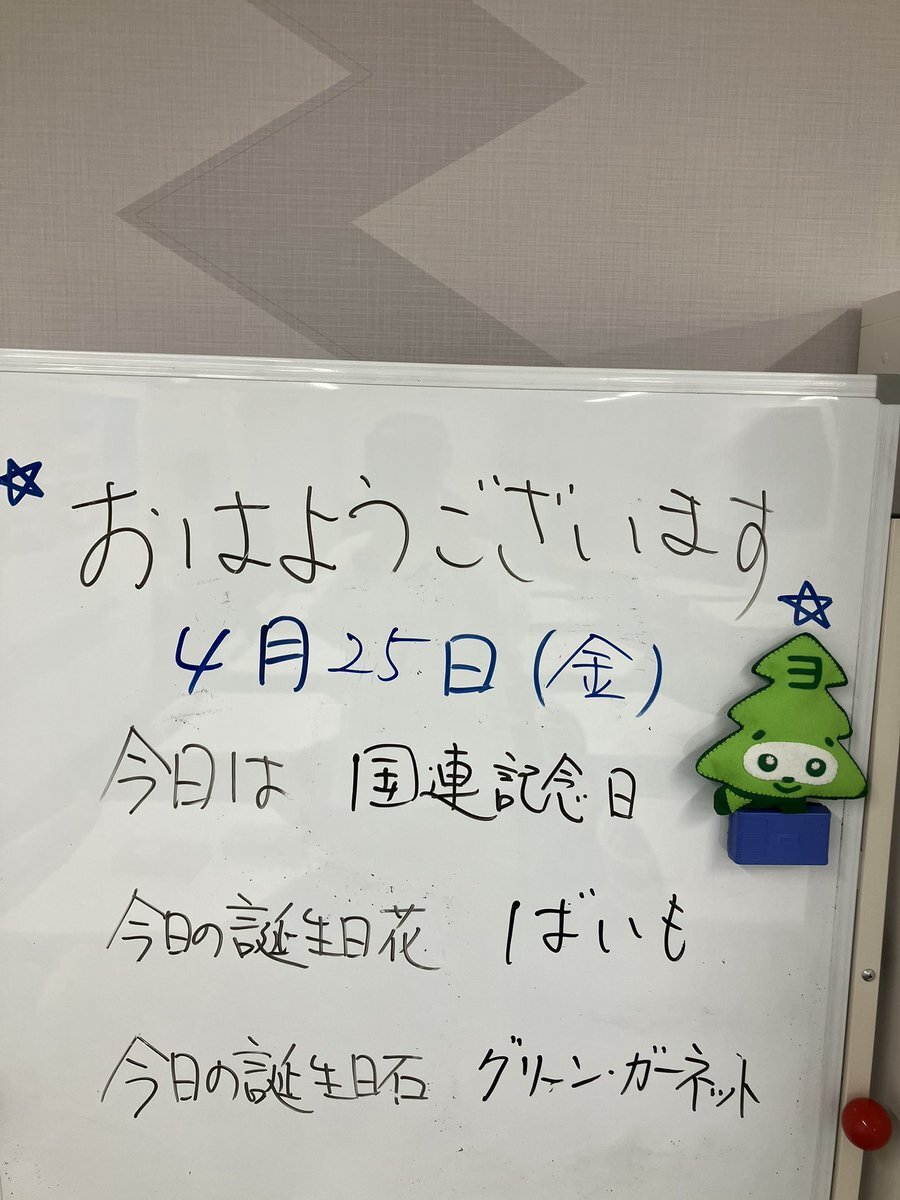 おはようございます
4月25日(金)
ヨ
今日は 国連記念日
今日の誕生日花 ばいも
今日の誕生日石 グリーン・ガーネット